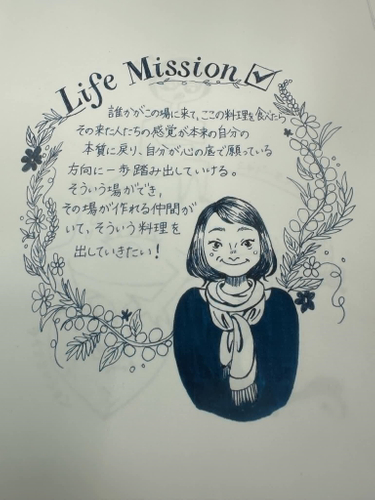 Life Mission
誰かがこの場に来て、ここの料理を食べたら
その来た人たちの感覚が本来の自分の
本質に戻り、自分が心の底で願っている
方向に一歩踏み出していける。
そういう場ができ、
その場が作れる仲間が
いて、そういう料理を
出していきたい!